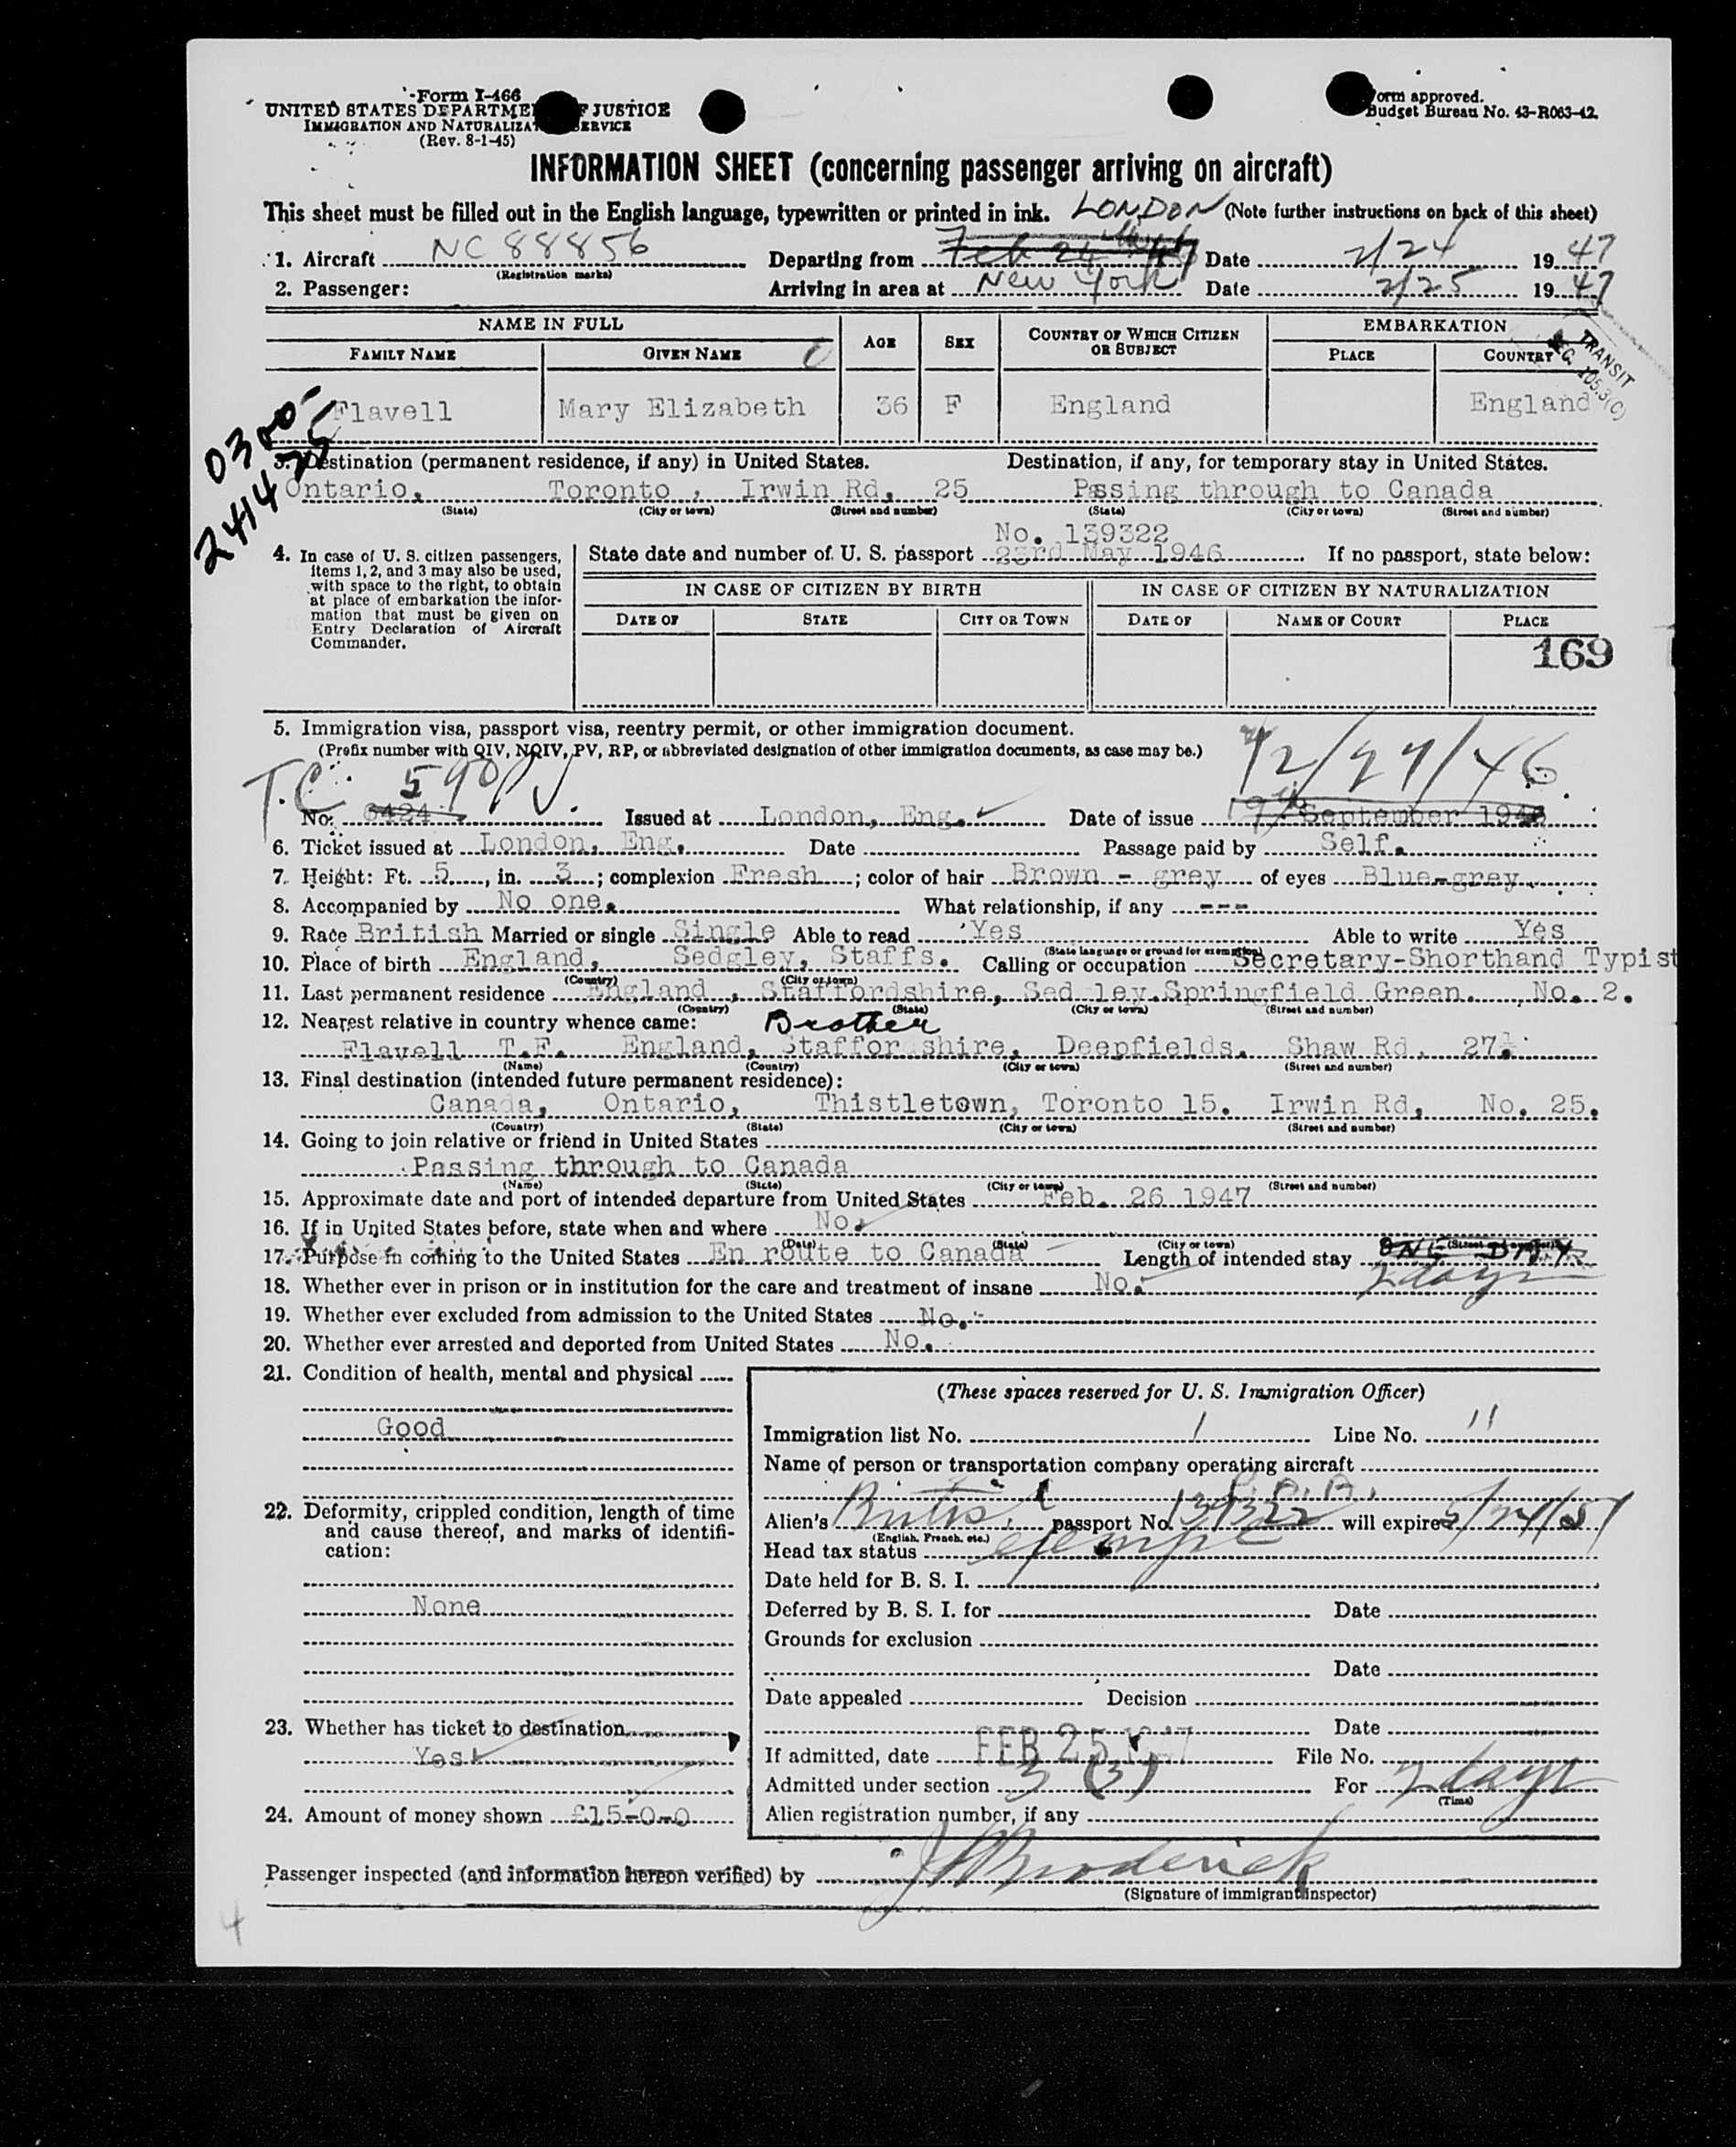 Form I-466
UNITED STATES DEPARTME F JUSTICE
IMMIGRATION AND NATURALIZAT SERVICE
(Rev. 8-1-45)
orm approved.
Budget Bureau No. 43-R063-42.
INFORMATION SHEET (concerning passenger arriving on aircraft)
This sheet must be filled out in the English language, typewritten or printed in ink. LONDON (Note further instructions on back of this sheet)
1. Aircraft NC 88856 Departing from Feb 24th 47 Date 2/24 1947
(Registration marks)
2. Passenger: Arriving in area at New York Date 2/25 1947
NAME IN FULL AGE SEX COUNTRY OF WHICH CITIZEN OR SUBJECT EMBARKATION
FAMILY NAME GIVEN NAME PLACE COUNTRY
TRANSIT
105.3(C)
Flavell Mary Elizabeth 36 F England England
0300-
241435
3. Destination (permanent residence, if any) in United States. Destination, if any, for temporary stay in United States.
Ontario, Toronto, Irwin Rd, 25 Passing through to Canada
(State) (City or town) (Street and number) (State) (City or town) (Street and number)
No. 139322
4. In case of U. S. citizen passengers, items 1, 2, and 3 may also be used, with space to the right, to obtain at place of embarkation the information that must be given on Entry Declaration of Aircraft Commander.
State date and number of U. S. passport 23rd May 1946. If no passport, state below:
IN CASE OF CITIZEN BY BIRTH IN CASE OF CITIZEN BY NATURALIZATION
DATE OF STATE CITY OR TOWN DATE OF NAME OF COURT PLACE
169
5. Immigration visa, passport visa, reentry permit, or other immigration document.
(Prefix number with QIV, NQIV, PV, RP, or abbreviated designation of other immigration documents, as case may be.)
T.C. 590 PV 12/27/46
No. 6424 Issued at London, Eng. Date of issue 19th September 1946
6. Ticket issued at London, Eng. Date Passage paid by Self.
7. Height: Ft. 5, in. 3; complexion Fresh; color of hair Brown - grey of eyes Blue-grey
8. Accompanied by No one. What relationship, if any ---
9. Race British Married or single Single Able to read Yes Able to write Yes
(State language or ground for exemption)
10. Place of birth England, Sedgley, Staffs. Calling or occupation Secretary-Shorthand Typist
(Country) (City or town)
11. Last permanent residence England, Staffordshire, Sed ley. Springfield Green. No. 2.
(Country) (State) (City or town) (Street and number)
12. Nearest relative in country whence came: Brother
Flavell T.F. England, Staffor shire, Deepfields. Shaw Rd. 27.
(Name) (Country) (City or town) (Street and number)
13. Final destination (intended future permanent residence):
Canada, Ontario, Thistletown, Toronto 15. Irwin Rd, No. 25.
(Country) (State) (City or town) (Street and number)
14. Going to join relative or friend in United States
Passing through to Canada
(Name) (State) (City or town) (Street and number)
15. Approximate date and port of intended departure from United States Feb. 26 1947
16. If in United States before, state when and where No.
(Date) (State) (City or town) (Street and number)
17. Purpose in coming to the United States En route to Canada Length of intended stay ONE DAY
2 days
18. Whether ever in prison or in institution for the care and treatment of insane No.
19. Whether ever excluded from admission to the United States No.
20. Whether ever arrested and deported from United States No.
21. Condition of health, mental and physical
Good
22. Deformity, crippled condition, length of time and cause thereof, and marks of identification:
None
23. Whether has ticket to destination
Yes
24. Amount of money shown £15-0-0
(These spaces reserved for U. S. Immigration Officer)
Immigration list No. 1 Line No. 11
Name of person or transportation company operating aircraft
P.A.A.
Alien's British passport No. 139322 will expire 5/24/51
(English, French, etc.)
Head tax status exempt
Date held for B. S. I.
Deferred by B. S. I. for Date
Grounds for exclusion
Date
Date appealed Decision
Date
If admitted, date FEB 25 1947 File No.
Admitted under section 3 (3) For 2 days
(Time)
Alien registration number, if any
Passenger inspected (and information hereon verified) by J Broderick
(Signature of immigrant inspector)
4